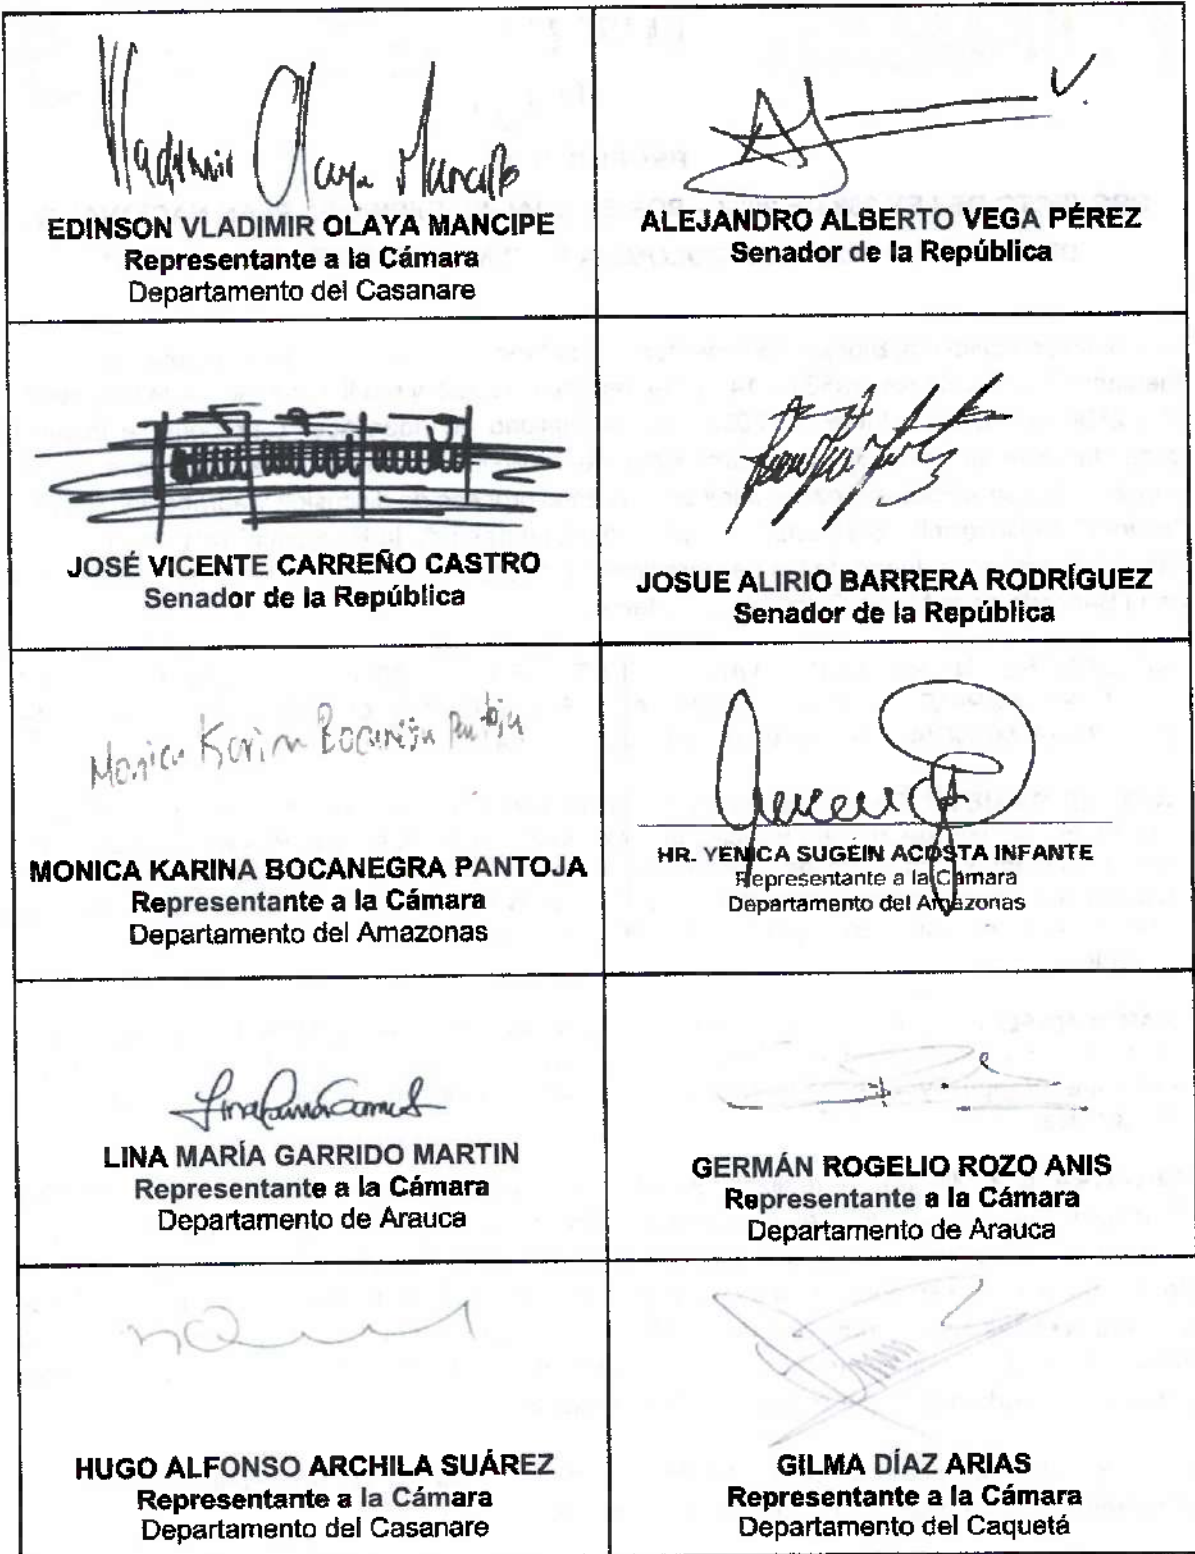 Vladimir Olaya Mancipe
EDINSON VLADIMIR OLAYA MANCIPE
Representante a la Cámara
Departamento del Casanare
ALEJANDRO ALBERTO VEGA PÉREZ
Senador de la República
JOSÉ VICENTE CARREÑO CASTRO
Senador de la República
JOSUE ALIRIO BARRERA RODRÍGUEZ
Senador de la República
Monica Karina Bocanegra Pantoja
MONICA KARINA BOCANEGRA PANTOJA
Representante a la Cámara
Departamento del Amazonas
HR. YENICA SUGEIN ACOSTA INFANTE
Representante a la Cámara
Departamento del Amazonas
LINA MARÍA GARRIDO MARTIN
Representante a la Cámara
Departamento de Arauca
GERMÁN ROGELIO ROZO ANIS
Representante a la Cámara
Departamento de Arauca
HUGO ALFONSO ARCHILA SUÁREZ
Representante a la Cámara
Departamento del Casanare
GILMA DÍAZ ARIAS
Representante a la Cámara
Departamento del Caquetá